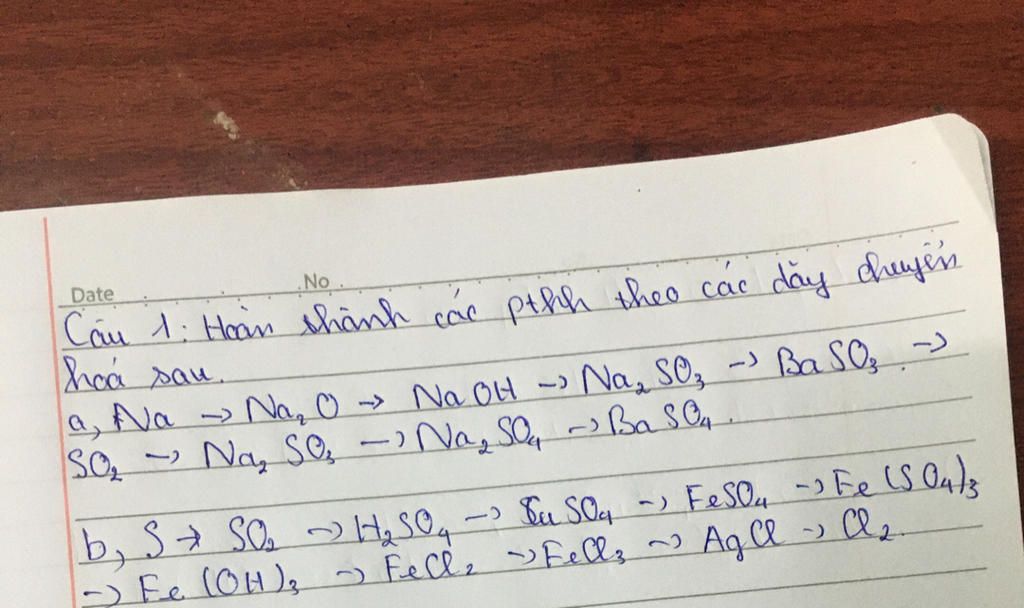 Date No
Câu 1: Hoàn thành các pthh theo các dãy chuyển
hoá sau.
a, Na → Na₂O → NaOH → Na₂SO₃ → BaSO₃. →
SO₂ → Na₂SO₃ → Na₂SO₄ → BaSO₄.
b, S → SO₂ → H₂SO₄ → CuSO₄ → FeSO₄ → Fe(SO₄)₃
→ Fe(OH)₃ → FeCl₂ → FeCl₃ → AgCl → Cl₂.